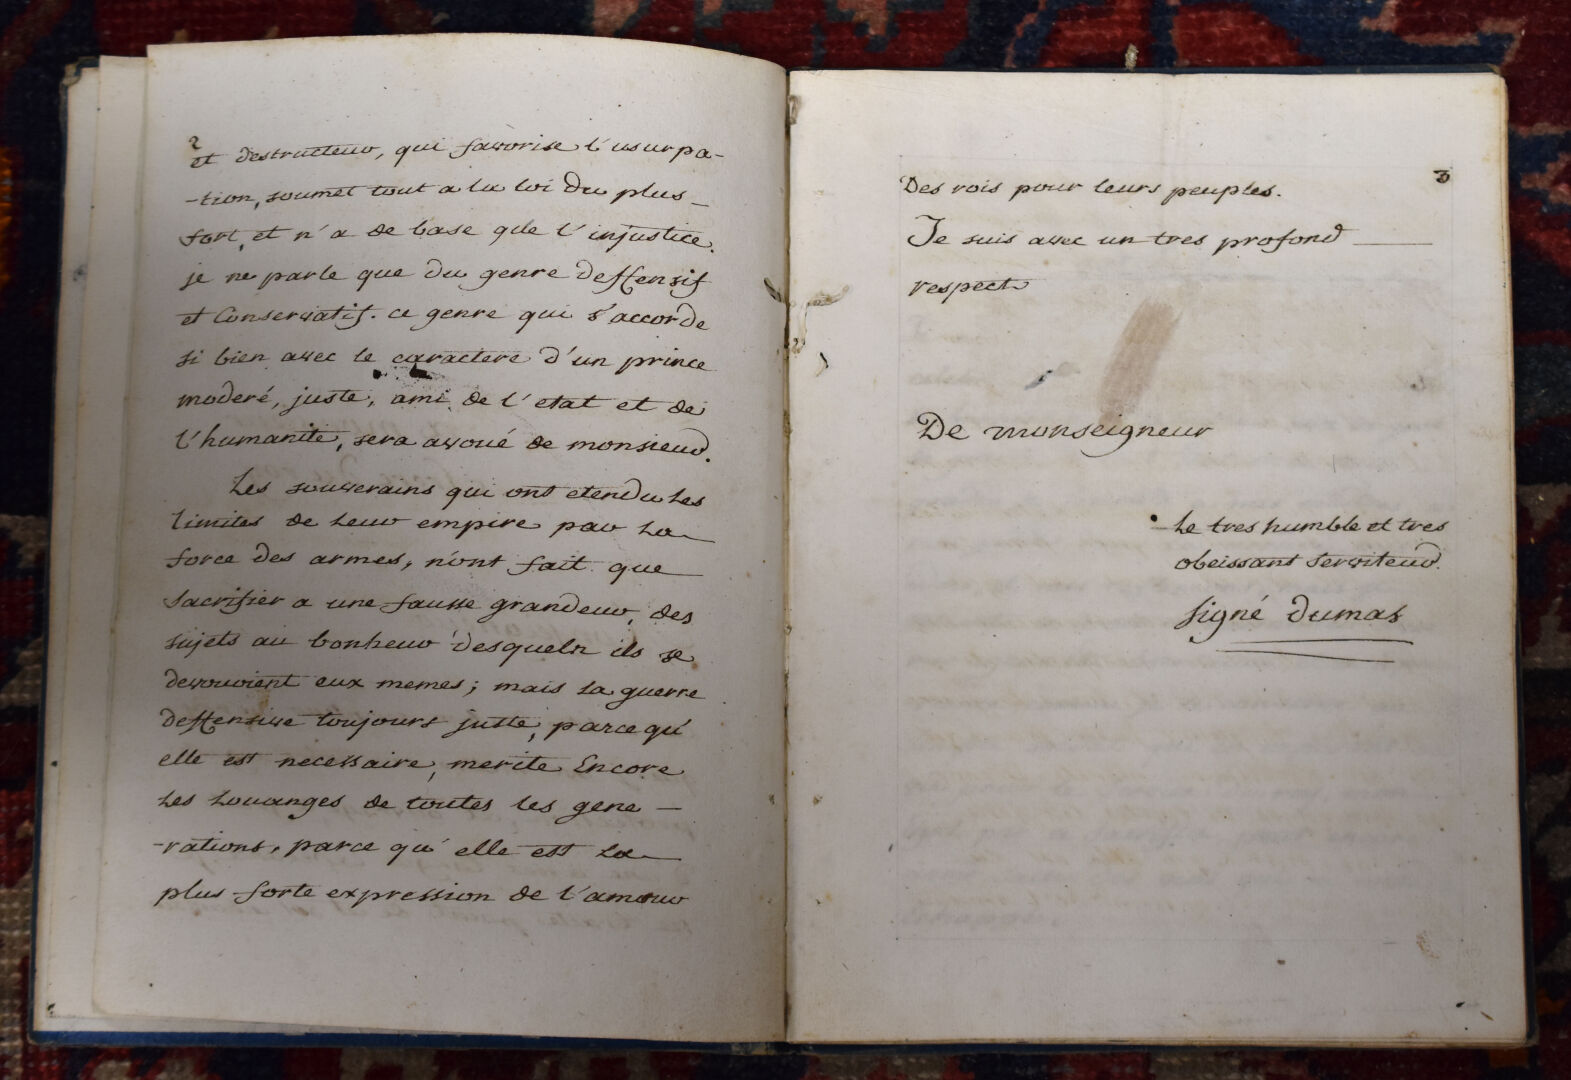 2
et destructeur, qui favorise l'usurpa-
-tion, soumet tout a la loi du plus
fort, et n'a de base que l'injustice.
je ne parle que du genre deffensif
et Conservatif. ce genre qui s'accorde
si bien avec le caractere d'un prince
moderé, juste, ami de l'etat et de
l'humanité, sera avoué de monsieur.
Les souverains qui ont etendu les
limites de leur empire par la
force des armes, n'ont fait que
sacrifier a une fausse grandeur, des
sujets au bonheur desquels ils se
devouoient eux memes; mais la guerre
deffensive toujours juste, parce qu'
elle est necessaire, merite Encore
les louanges de toutes les gene-
-rations, parce qu'elle est la
plus forte expression de l'amour
3
Des rois pour leurs peuples.
Je suis avec un tres profond
respect
De monseigneur
Le tres humble et tres
obeissant serviteur.
signé dumas